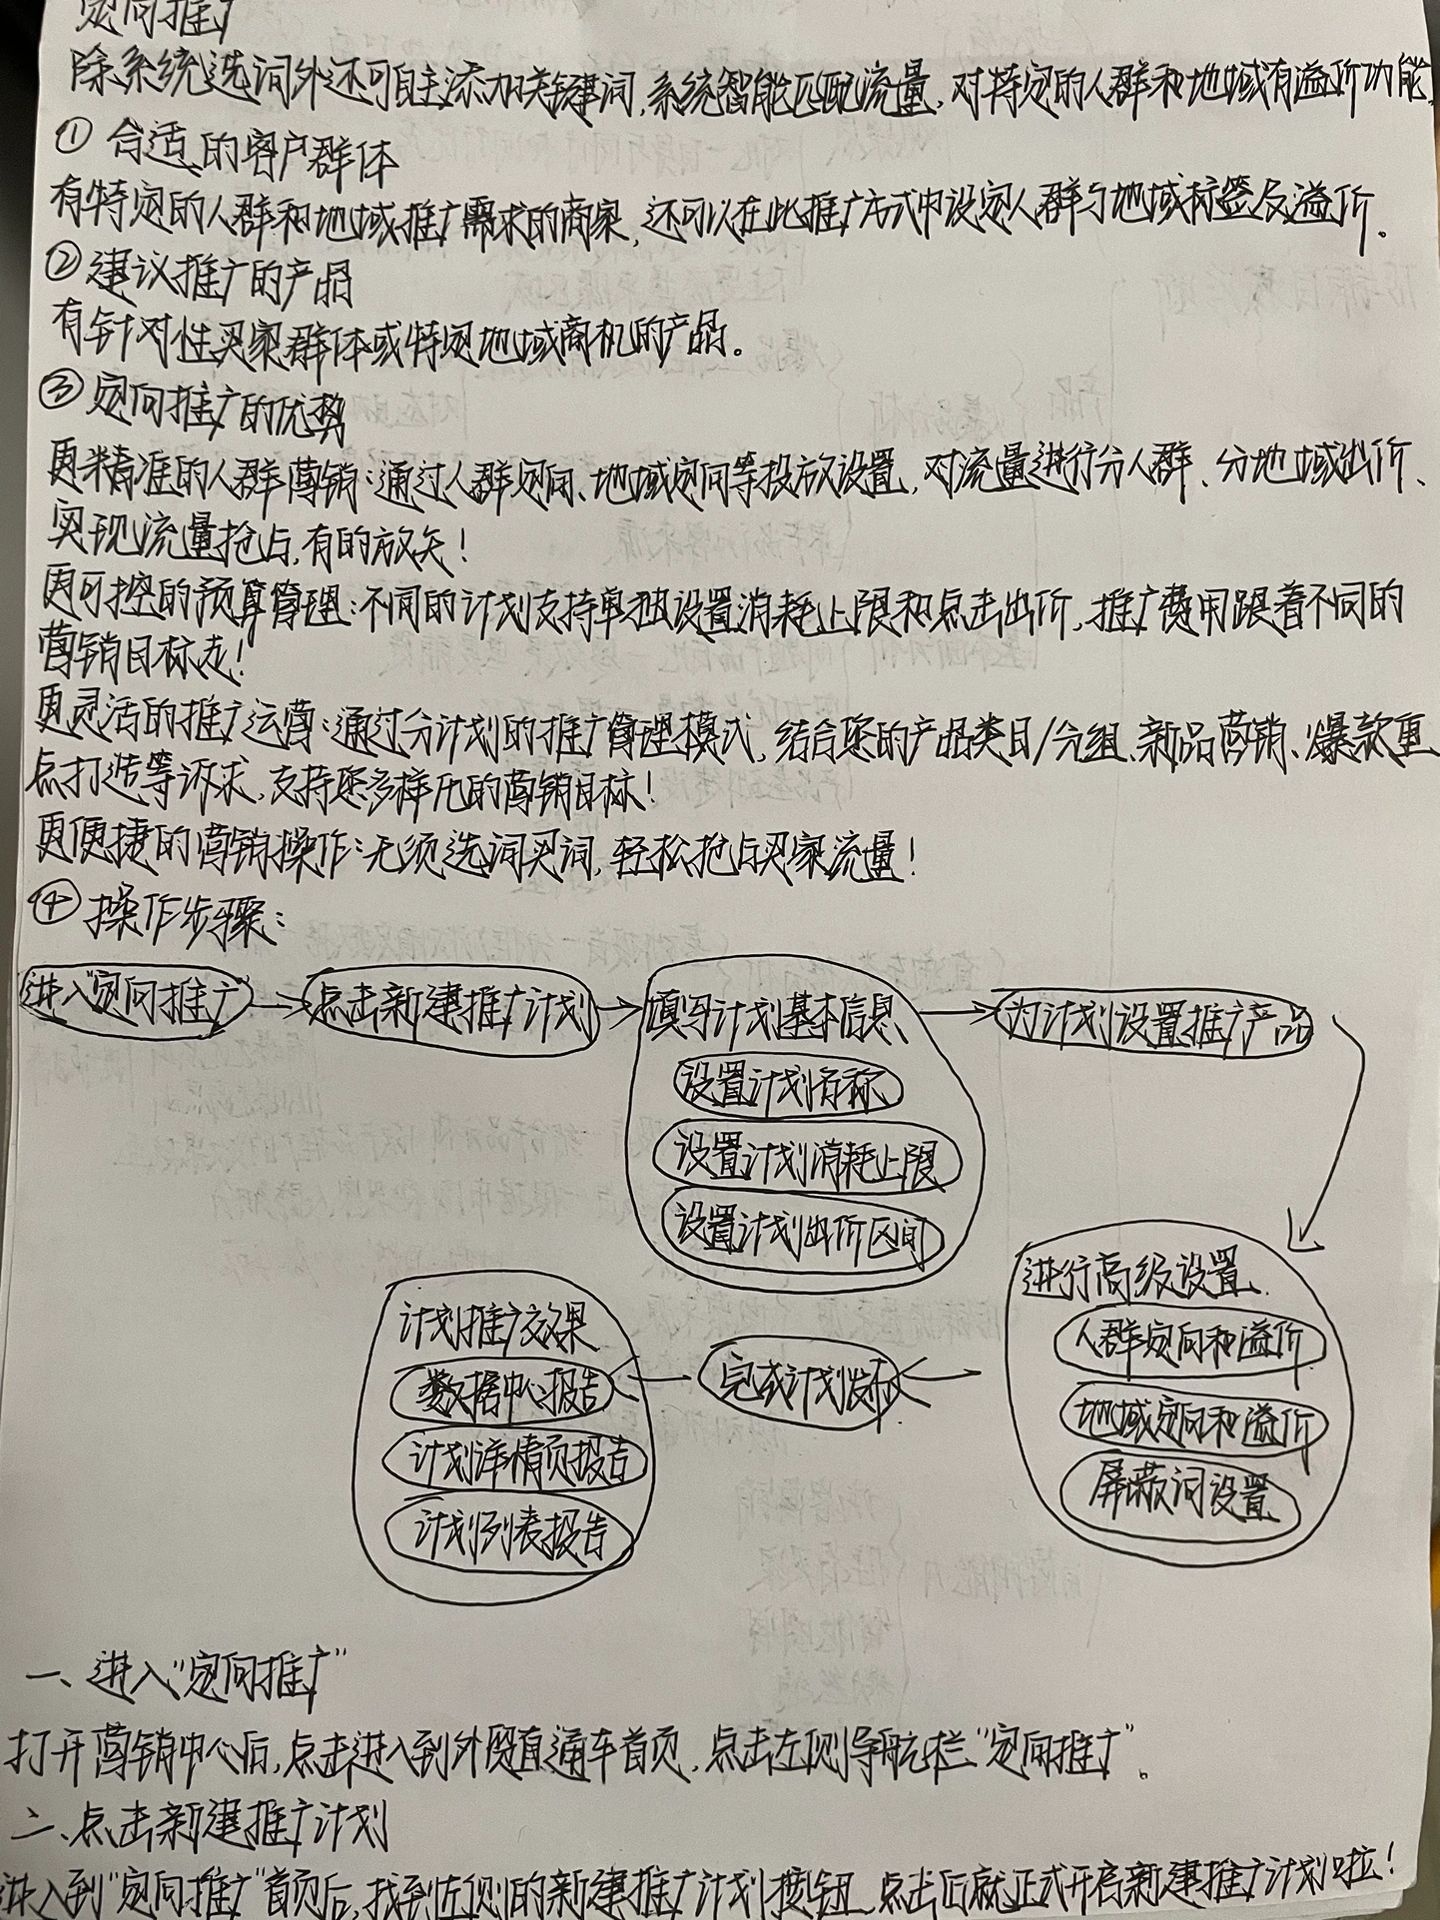 定向推广
除系统选词外还可自主添加关键词，系统智能匹配流量，对特定的人群和地域有溢价功能。
① 合适的客户群体
有特定的人群和地域推广需求的商家，还可以在此推广方式中设定人群与地域标签及溢价。
② 建议推广的产品
有针对性买家群体或特定地域商机的产品。
③ 定向推广的优势
更精准的人群营销：通过人群定向、地域定向等投放设置，对流量进行分人群、分地域出价、
实现流量抢占，有的放矢！
更可控的预算管理：不同的计划支持单独设置消耗上限和点击出价，推广费用跟着不同的
营销目标走！
更灵活的推广运营：通过分计划的推广管理模式，结合您的产品类目/分组、新品营销、爆款重
点打造等诉求，支持您多样化的营销目标！
更便捷的营销操作：无须选词买词，轻松抢占买家流量！
④ 操作步骤：
进入"定向推广
点击新建推广计划
填写计划基本信息
为计划设置推广产品
设置计划名称
设置计划消耗上限
设置计划出价区间
进行高级设置
人群定向和溢价
地域定向和溢价
屏蔽词设置
完成计划发布
计划推广效果
数据中心报告
计划详情页报告
计划列表报告
一、进入"定向推广"
打开营销中心后，点击进入到外贸直通车首页，点击左侧导航栏"定向推广"。
二、点击新建推广计划
进入到"定向推广"首页后，找到左侧的新建推广计划按钮，点击后就正式开启新建推广计划啦！